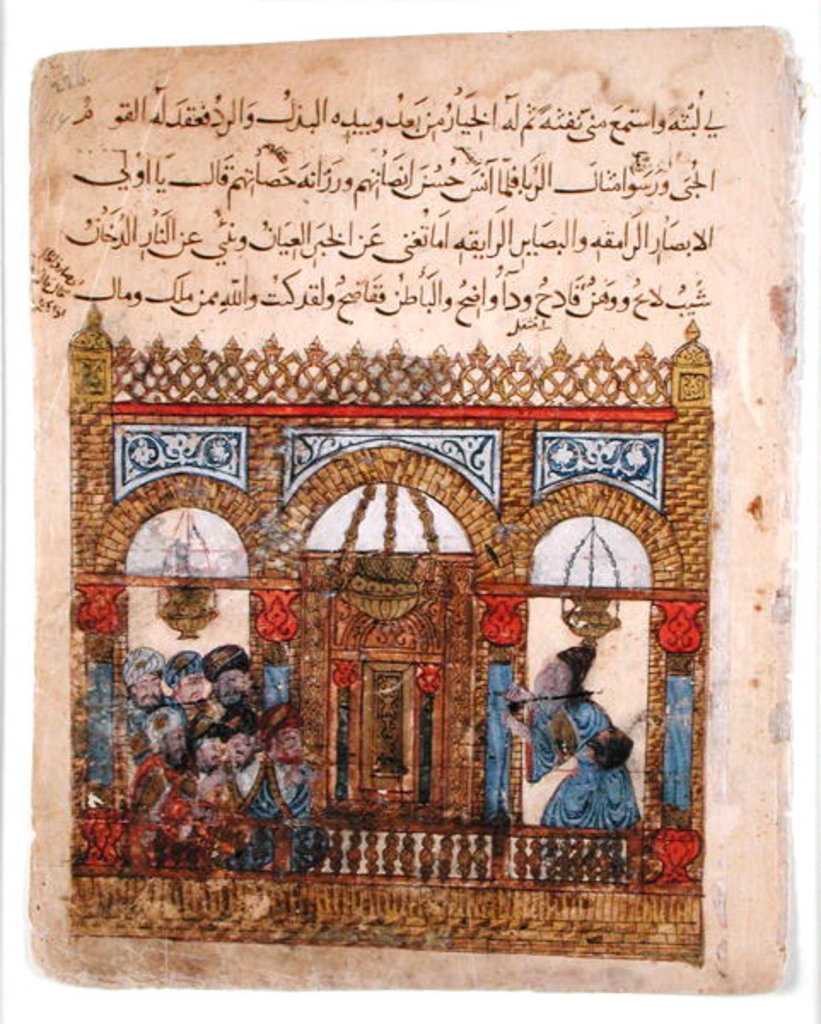 في لبثه واستمع من نفثه ثم له الخيار من بعد وبيده البذل والرد فعقد له القوم
الحبى ورسوا امثال الربا فلما آنس حسن انصاتهم ورزانة حصاتهم قال يا اولي
الابصار الرامقه والبصاير الرايقه اما تغني عن الخبر العيان وتنبي عن النار الدخان
شيب لاح ووهن فادح ودآ واضح والباطن ففاضح ولقد كنت والله ممن ملك ومال